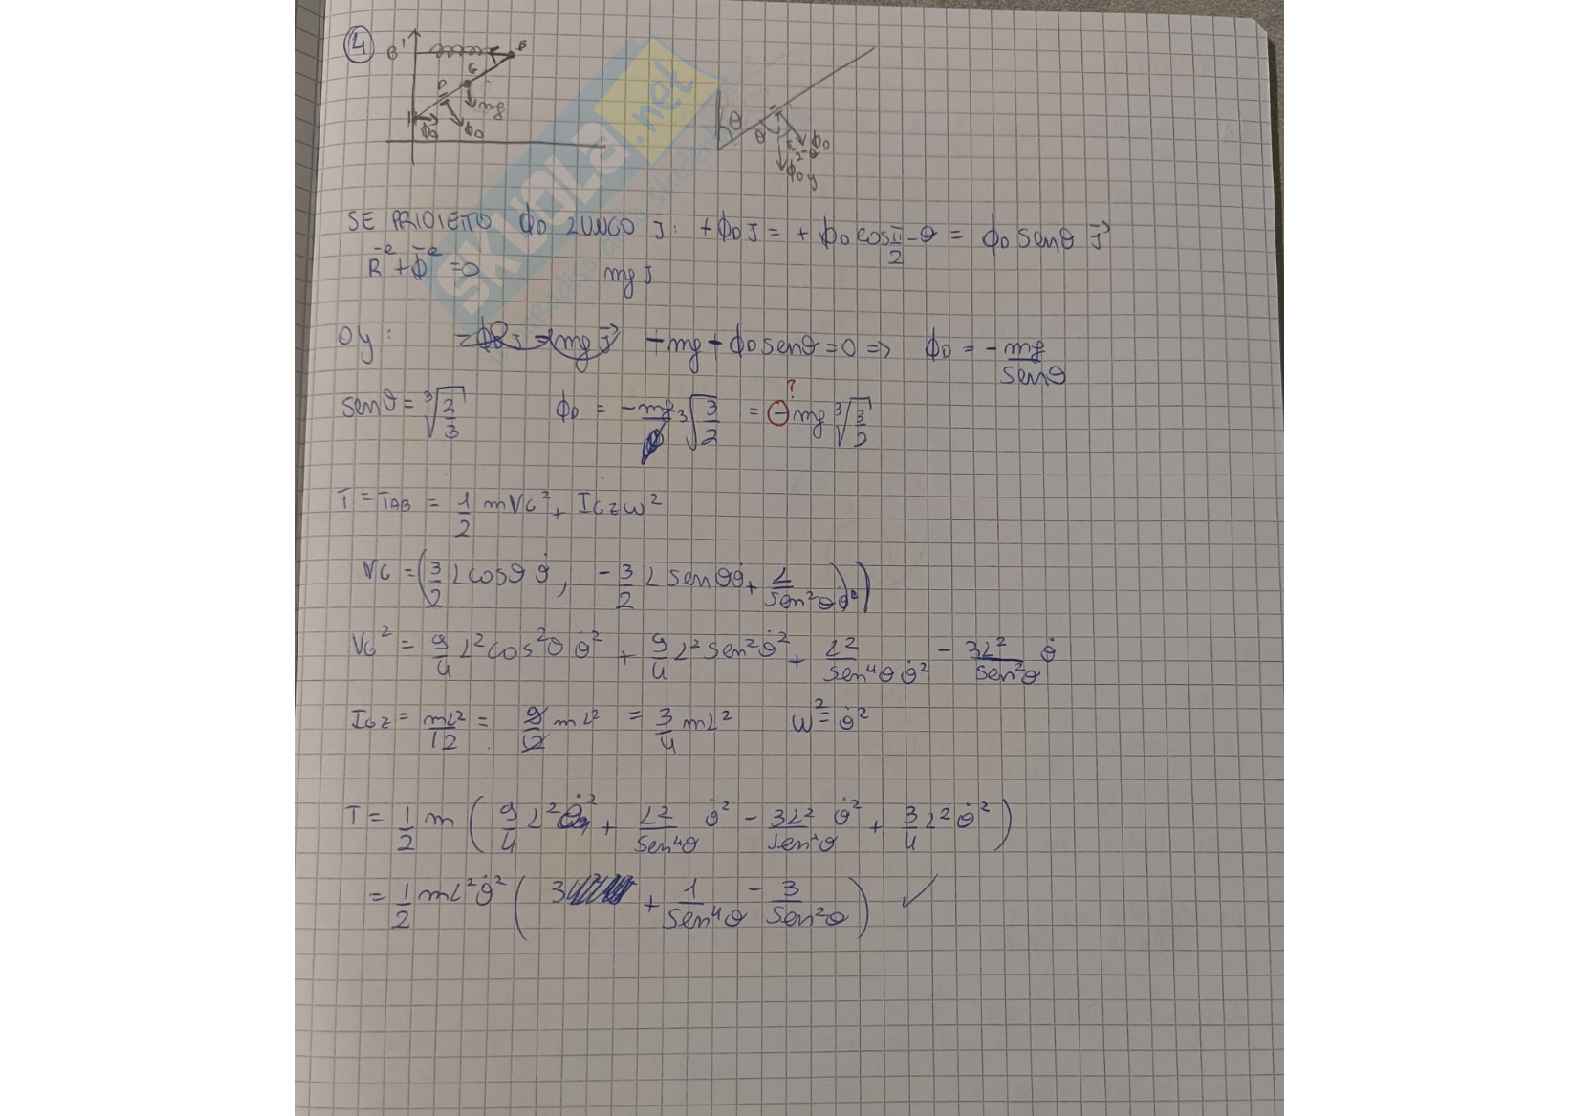 4
B' B
G
D
mg
ϕA ϕD
θ
θ ϕD
π/2-θ
ϕDy
SKUOLA.net
SE PROIETTO ϕD LUNGO J: +ϕD J = + ϕD cos π/2 - θ = ϕD senθ J
R^e + ϕ^e = 0 mg J
Oy: -mg + ϕD senθ = 0 => ϕD = - mg/senθ
senθ = ∛(2/3) ϕD = -mg ∛(3/2) = - mg ∛(3/2) ?
T = TAB = 1/2 m VG² + IGz ω²
VG = (3/2 L cosθ θ̇, -3/2 L senθ θ̇ + L/sen²θ θ̇)
VG² = 9/4 L² cos²θ θ̇² + 9/4 L² sen² θ̇² + L²/sen⁴θ θ̇² - 3L²/sen²θ θ̇
IGz = mL²/12 = 9/12 mL² = 3/4 mL² ω² = θ̇²
T = 1/2 m ( 9/4 L² θ̇² + L²/sen⁴θ θ̇² - 3L²/sen²θ θ̇² + 3/4 L² θ̇² )
= 1/2 mL² θ̇² ( 3 + 1/sen⁴θ - 3/sen²θ ) ✓